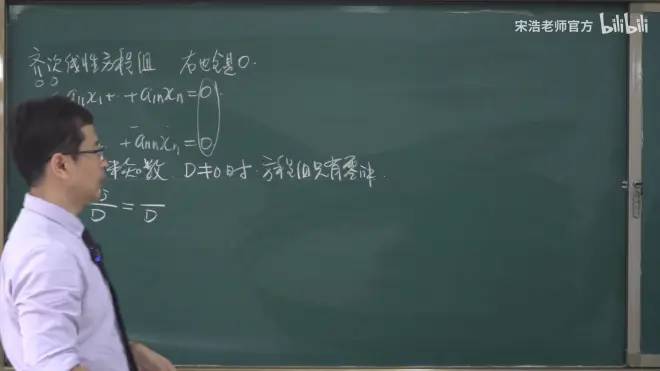 宋浩老师官方 bilibili
齐次线性方程组 右边全是0.
a₁₁x₁+ +a₁ₙxₙ=0
+aₙₙxₙ=0
未知数 D≠0时. 方程组只有零解.
D = D